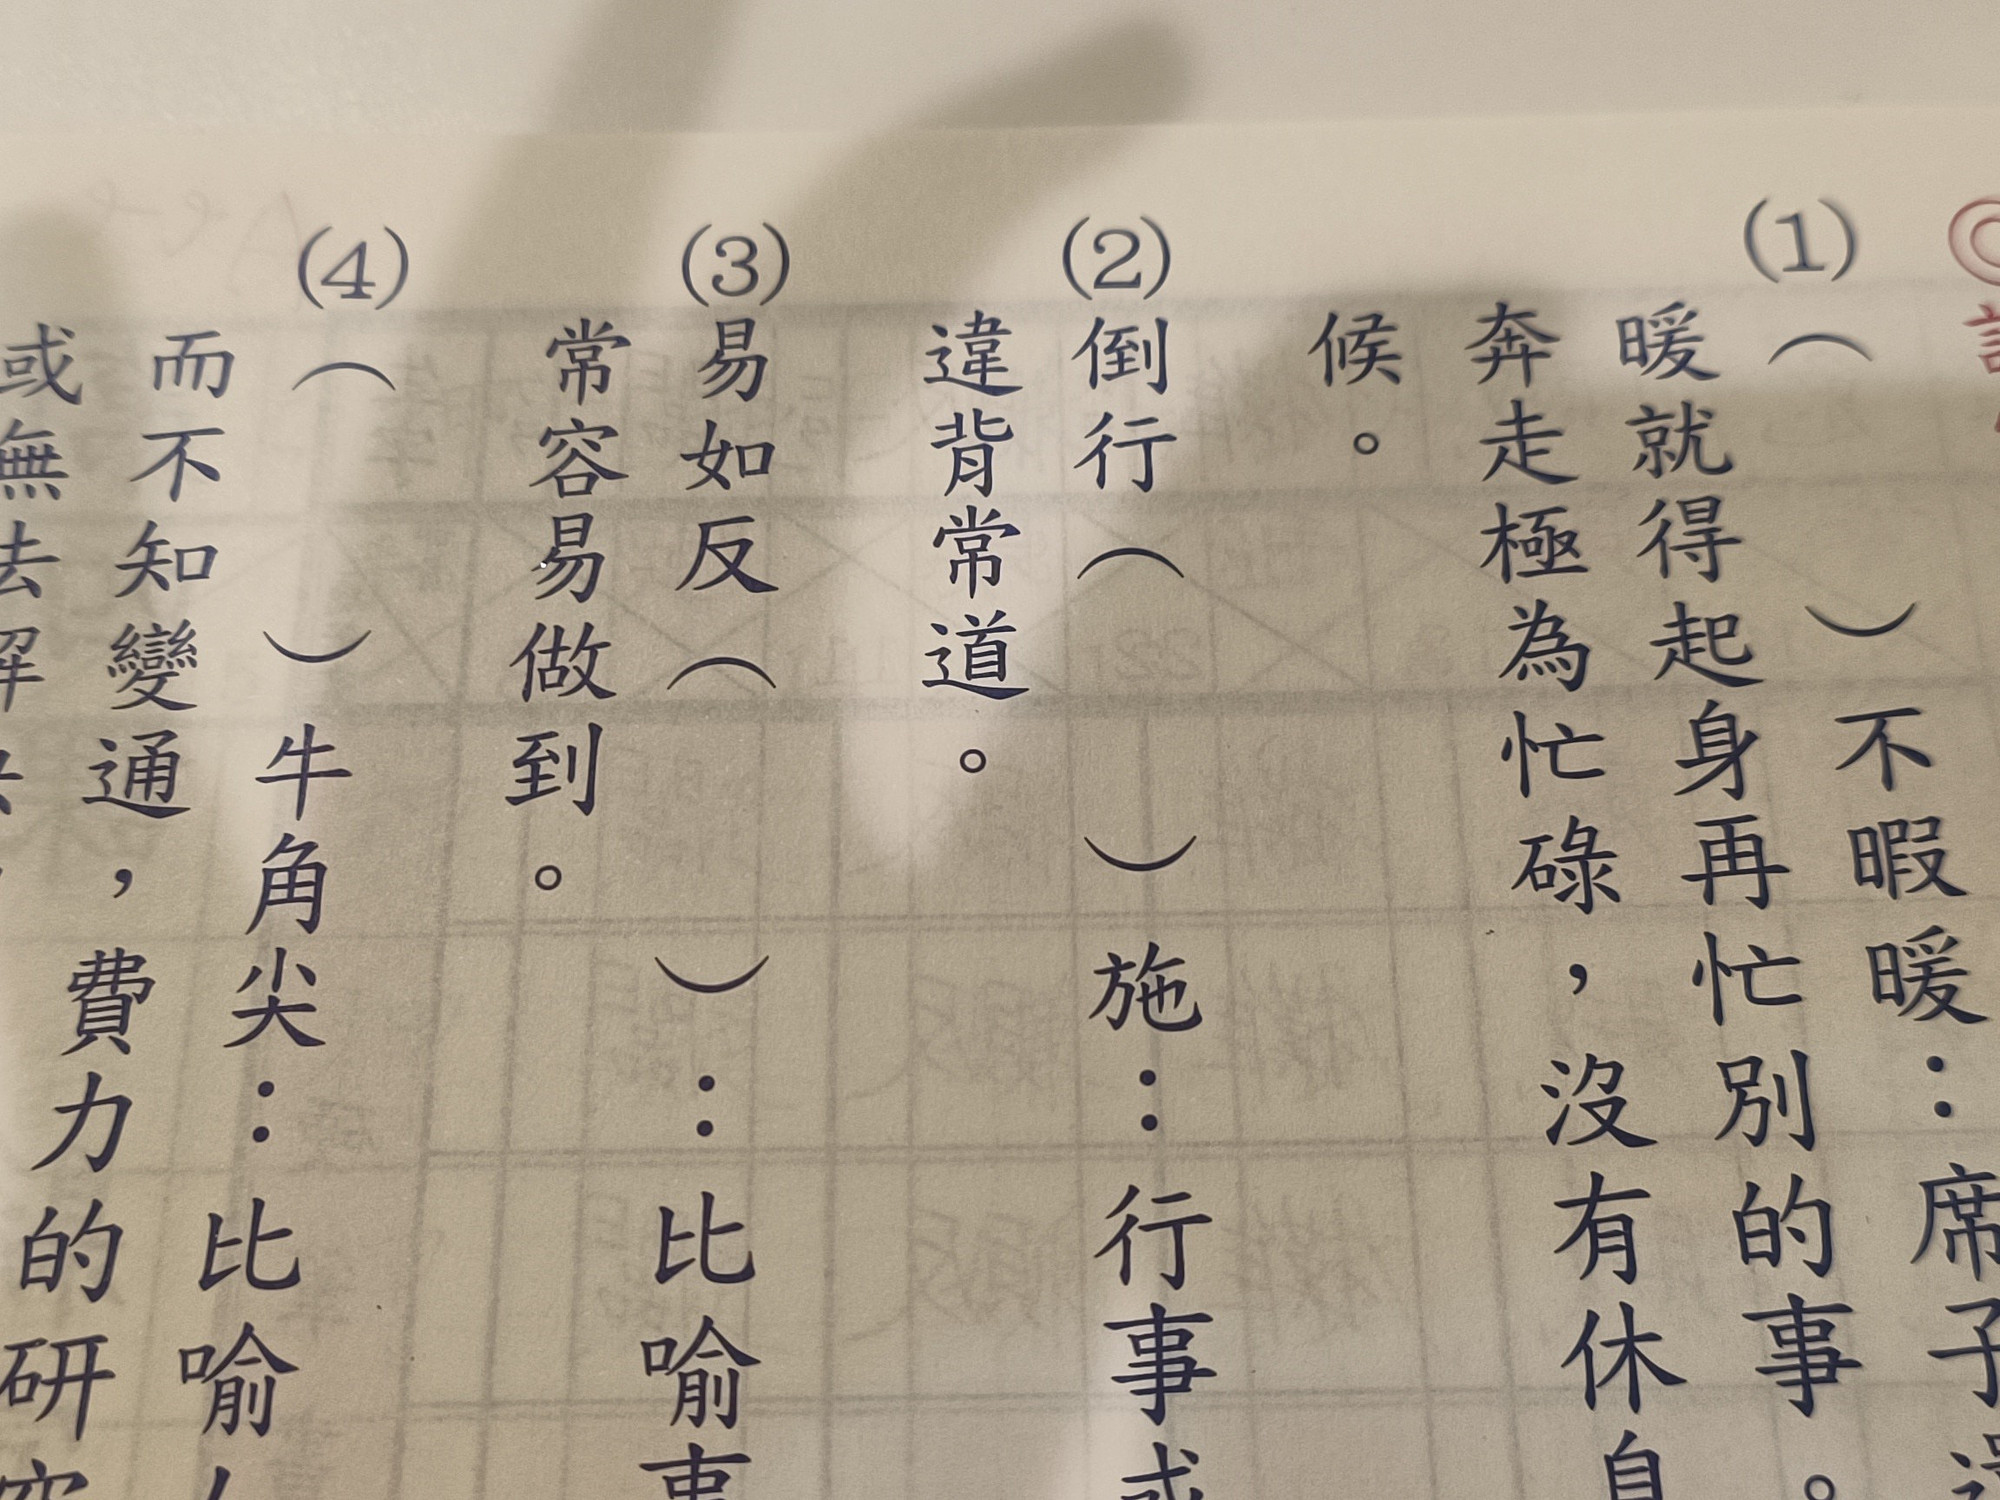 (1)（　　）不暇暖：席子還
暖就得起身再忙別的事。
奔走極為忙碌，沒有休息
候。
(2)倒行（　　）施：行事或
違背常道。
(3)易如反（　　）：比喻事
常容易做到。
(4)（　　）牛角尖：比喻人
而不知變通，費力的研究
或無法解決